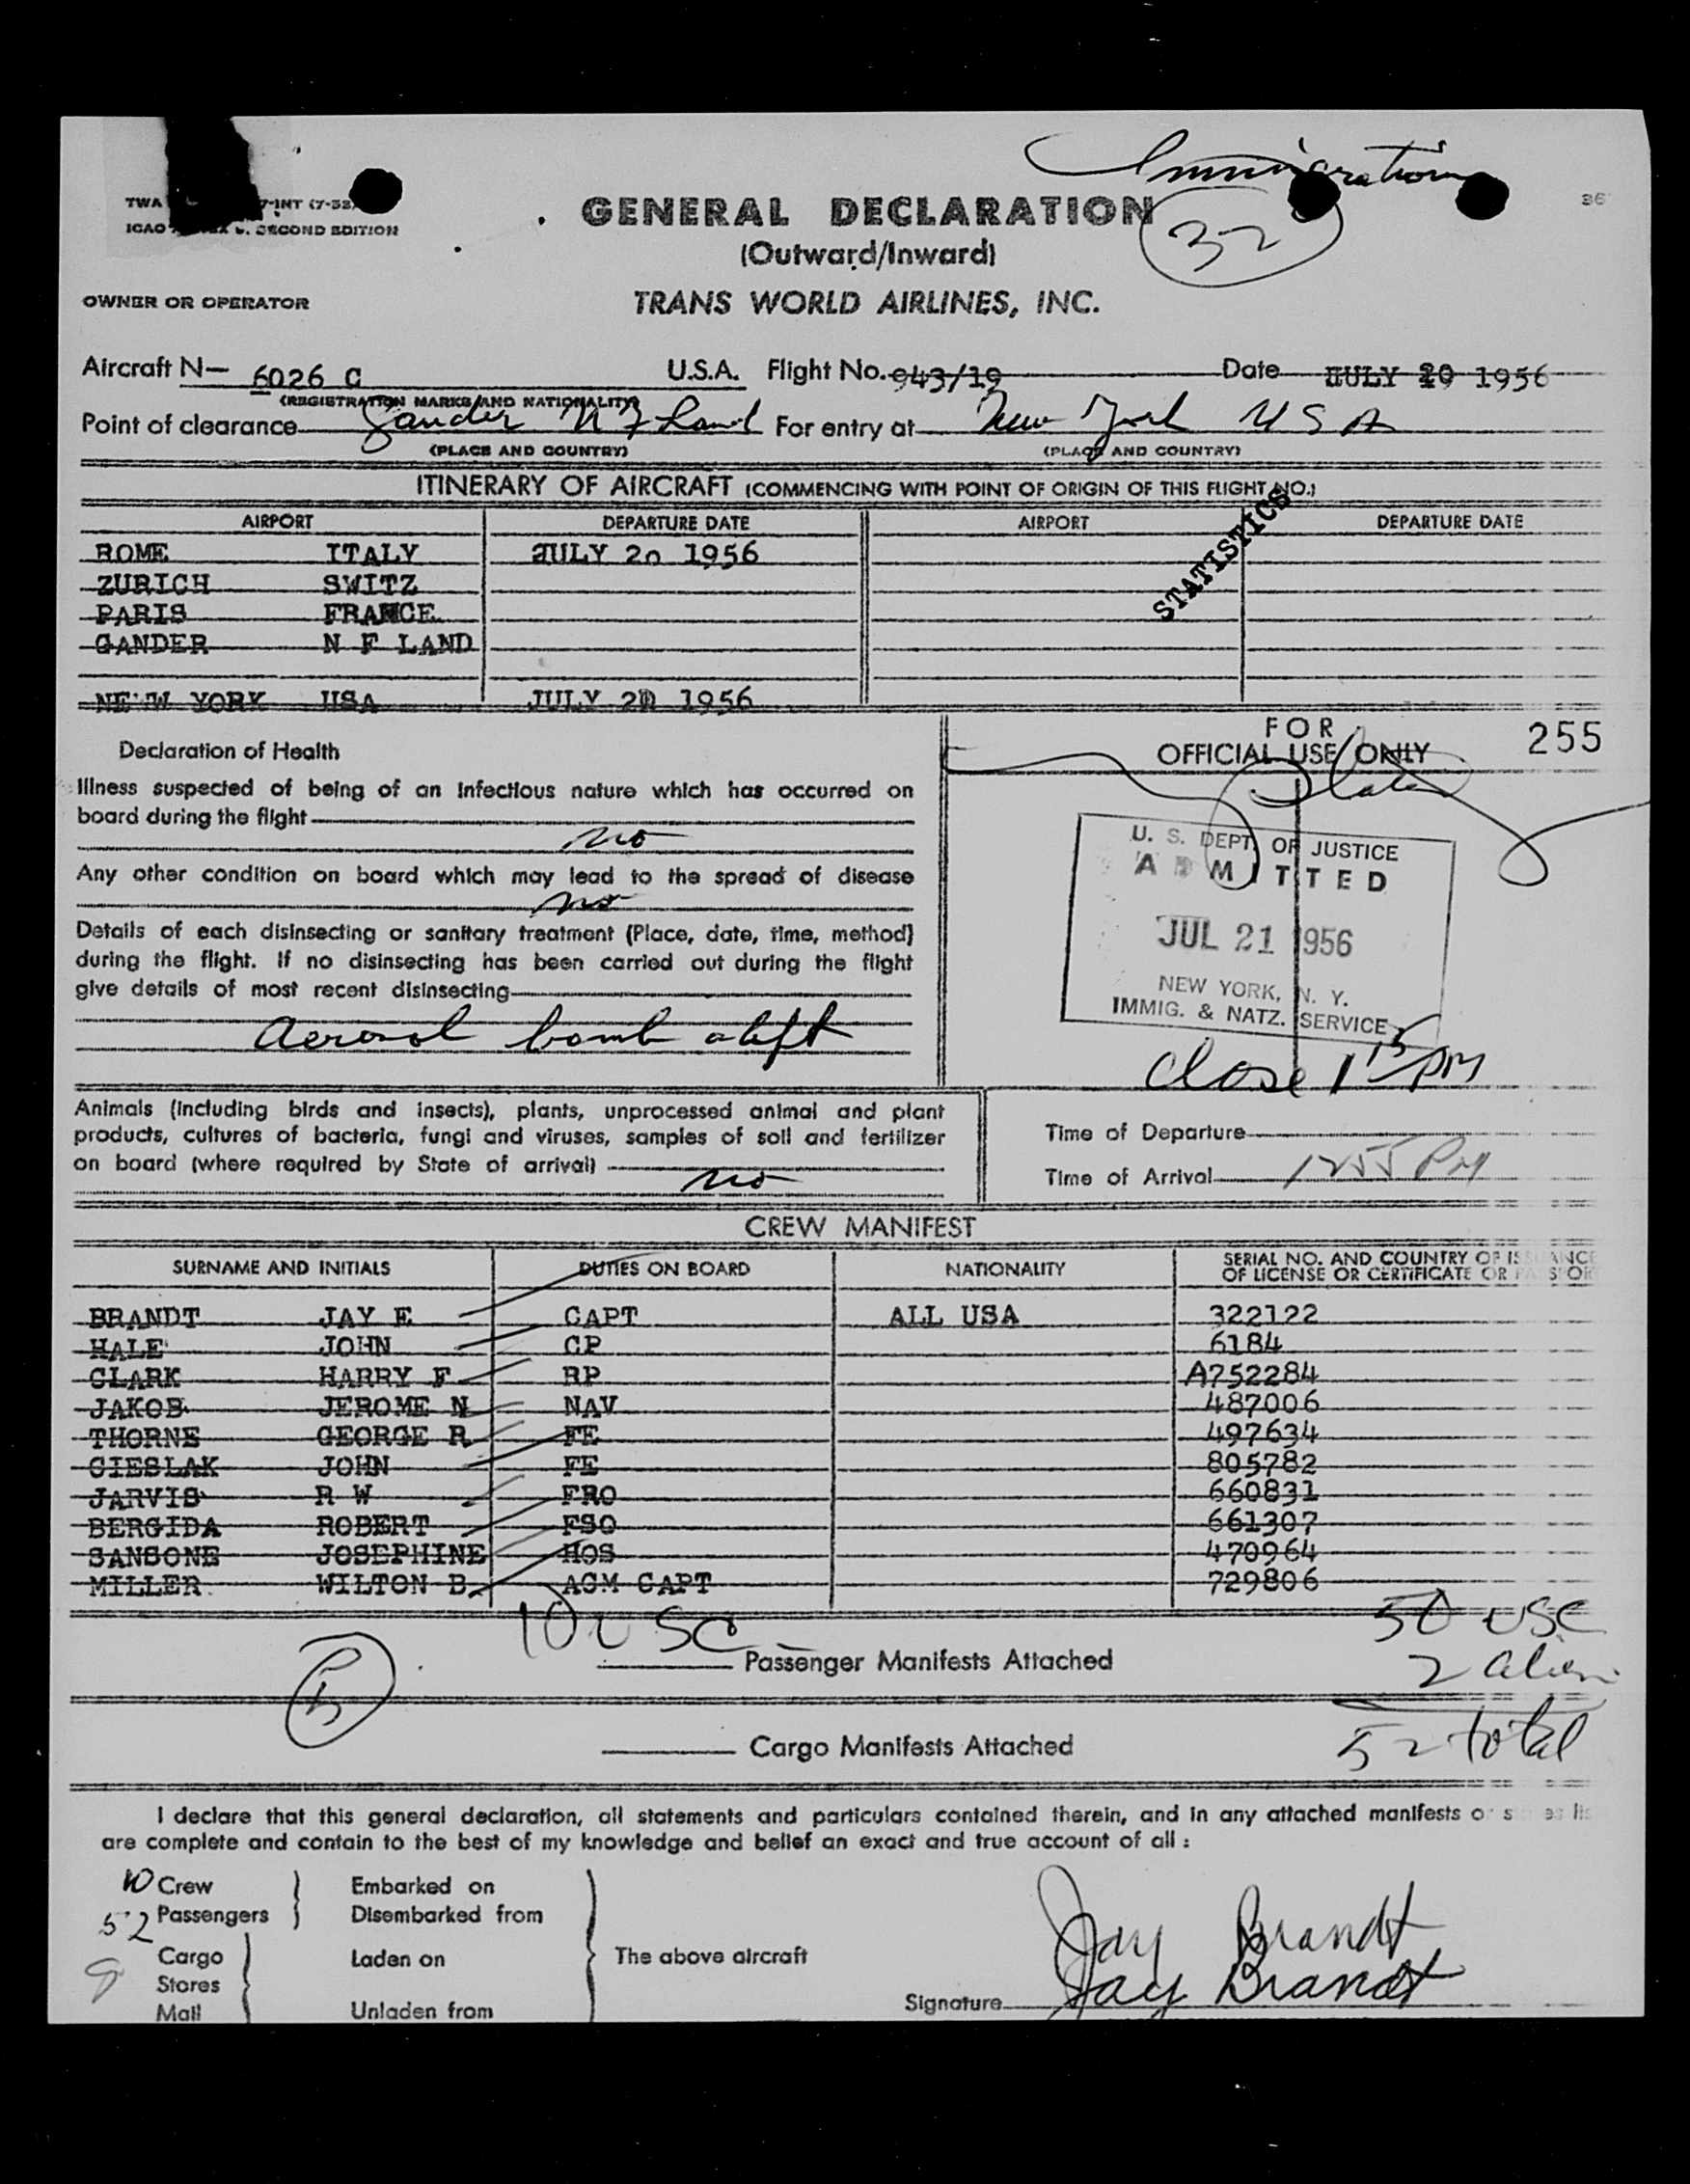 Immigration
TWA 7-INT (7-52)
ICAO SECOND EDITION
GENERAL DECLARATION
32
36
(Outward/Inward)
OWNER OR OPERATOR
TRANS WORLD AIRLINES, INC.
Aircraft N— 6026 C U.S.A. Flight No. 943/19 Date JULY 20 1956
(REGISTRATION MARKS AND NATIONALITY)
Point of clearance Gander N F Land For entry at New York USA
(PLACE AND COUNTRY) (PLACE AND COUNTRY)
ITINERARY OF AIRCRAFT (COMMENCING WITH POINT OF ORIGIN OF THIS FLIGHT NO.)
AIRPORT DEPARTURE DATE AIRPORT DEPARTURE DATE
STATISTICS
ROME ITALY JULY 20 1956
ZURICH SWITZ
PARIS FRANCE
GANDER N F LAND
NEW YORK USA JULY 20 1956
FOR
OFFICIAL USE ONLY 255
Declaration of Health
Illness suspected of being of an infectious nature which has occurred on
board during the flight
no
Any other condition on board which may lead to the spread of disease
no
Details of each disinsecting or sanitary treatment (Place, date, time, method)
during the flight. If no disinsecting has been carried out during the flight
give details of most recent disinsecting
Aerosol bomb aloft
U. S. DEPT. OF JUSTICE
ADMITTED
JUL 21 1956
NEW YORK, N. Y.
IMMIG. & NATZ. SERVICE
Close 1 15 PM
Animals (including birds and insects), plants, unprocessed animal and plant
products, cultures of bacteria, fungi and viruses, samples of soil and fertilizer
on board (where required by State of arrival)
no
Time of Departure
Time of Arrival 1255 PM
CREW MANIFEST
SURNAME AND INITIALS DUTIES ON BOARD NATIONALITY SERIAL NO. AND COUNTRY OF ISSUANCE
OF LICENSE OR CERTIFICATE OR PASSPORT
BRANDT JAY E CAPT ALL USA 322122
HALE JOHN CP 6184
CLARK HARRY F RP A752284
JAKOB JEROME N NAV 487006
THORNE GEORGE R FE 497634
CIESLAK JOHN FE 805782
JARVIS R W FRO 660831
BERGIDA ROBERT FSO 661307
SANSONE JOSEPHINE HOS 470964
MILLER WILTON B ACM CAPT 729806
10 USC
50 USC
Passenger Manifests Attached
2 alien
Cargo Manifests Attached
52 total
I declare that this general declaration, all statements and particulars contained therein, and in any attached manifests
are complete and contain to the best of my knowledge and belief an exact and true account of all :
10 Crew Embarked on
52 Passengers Disembarked from
Cargo Laden on The above aircraft
Stores
Mail Unladen from
Jay Brandt
Signature Jay Brandt